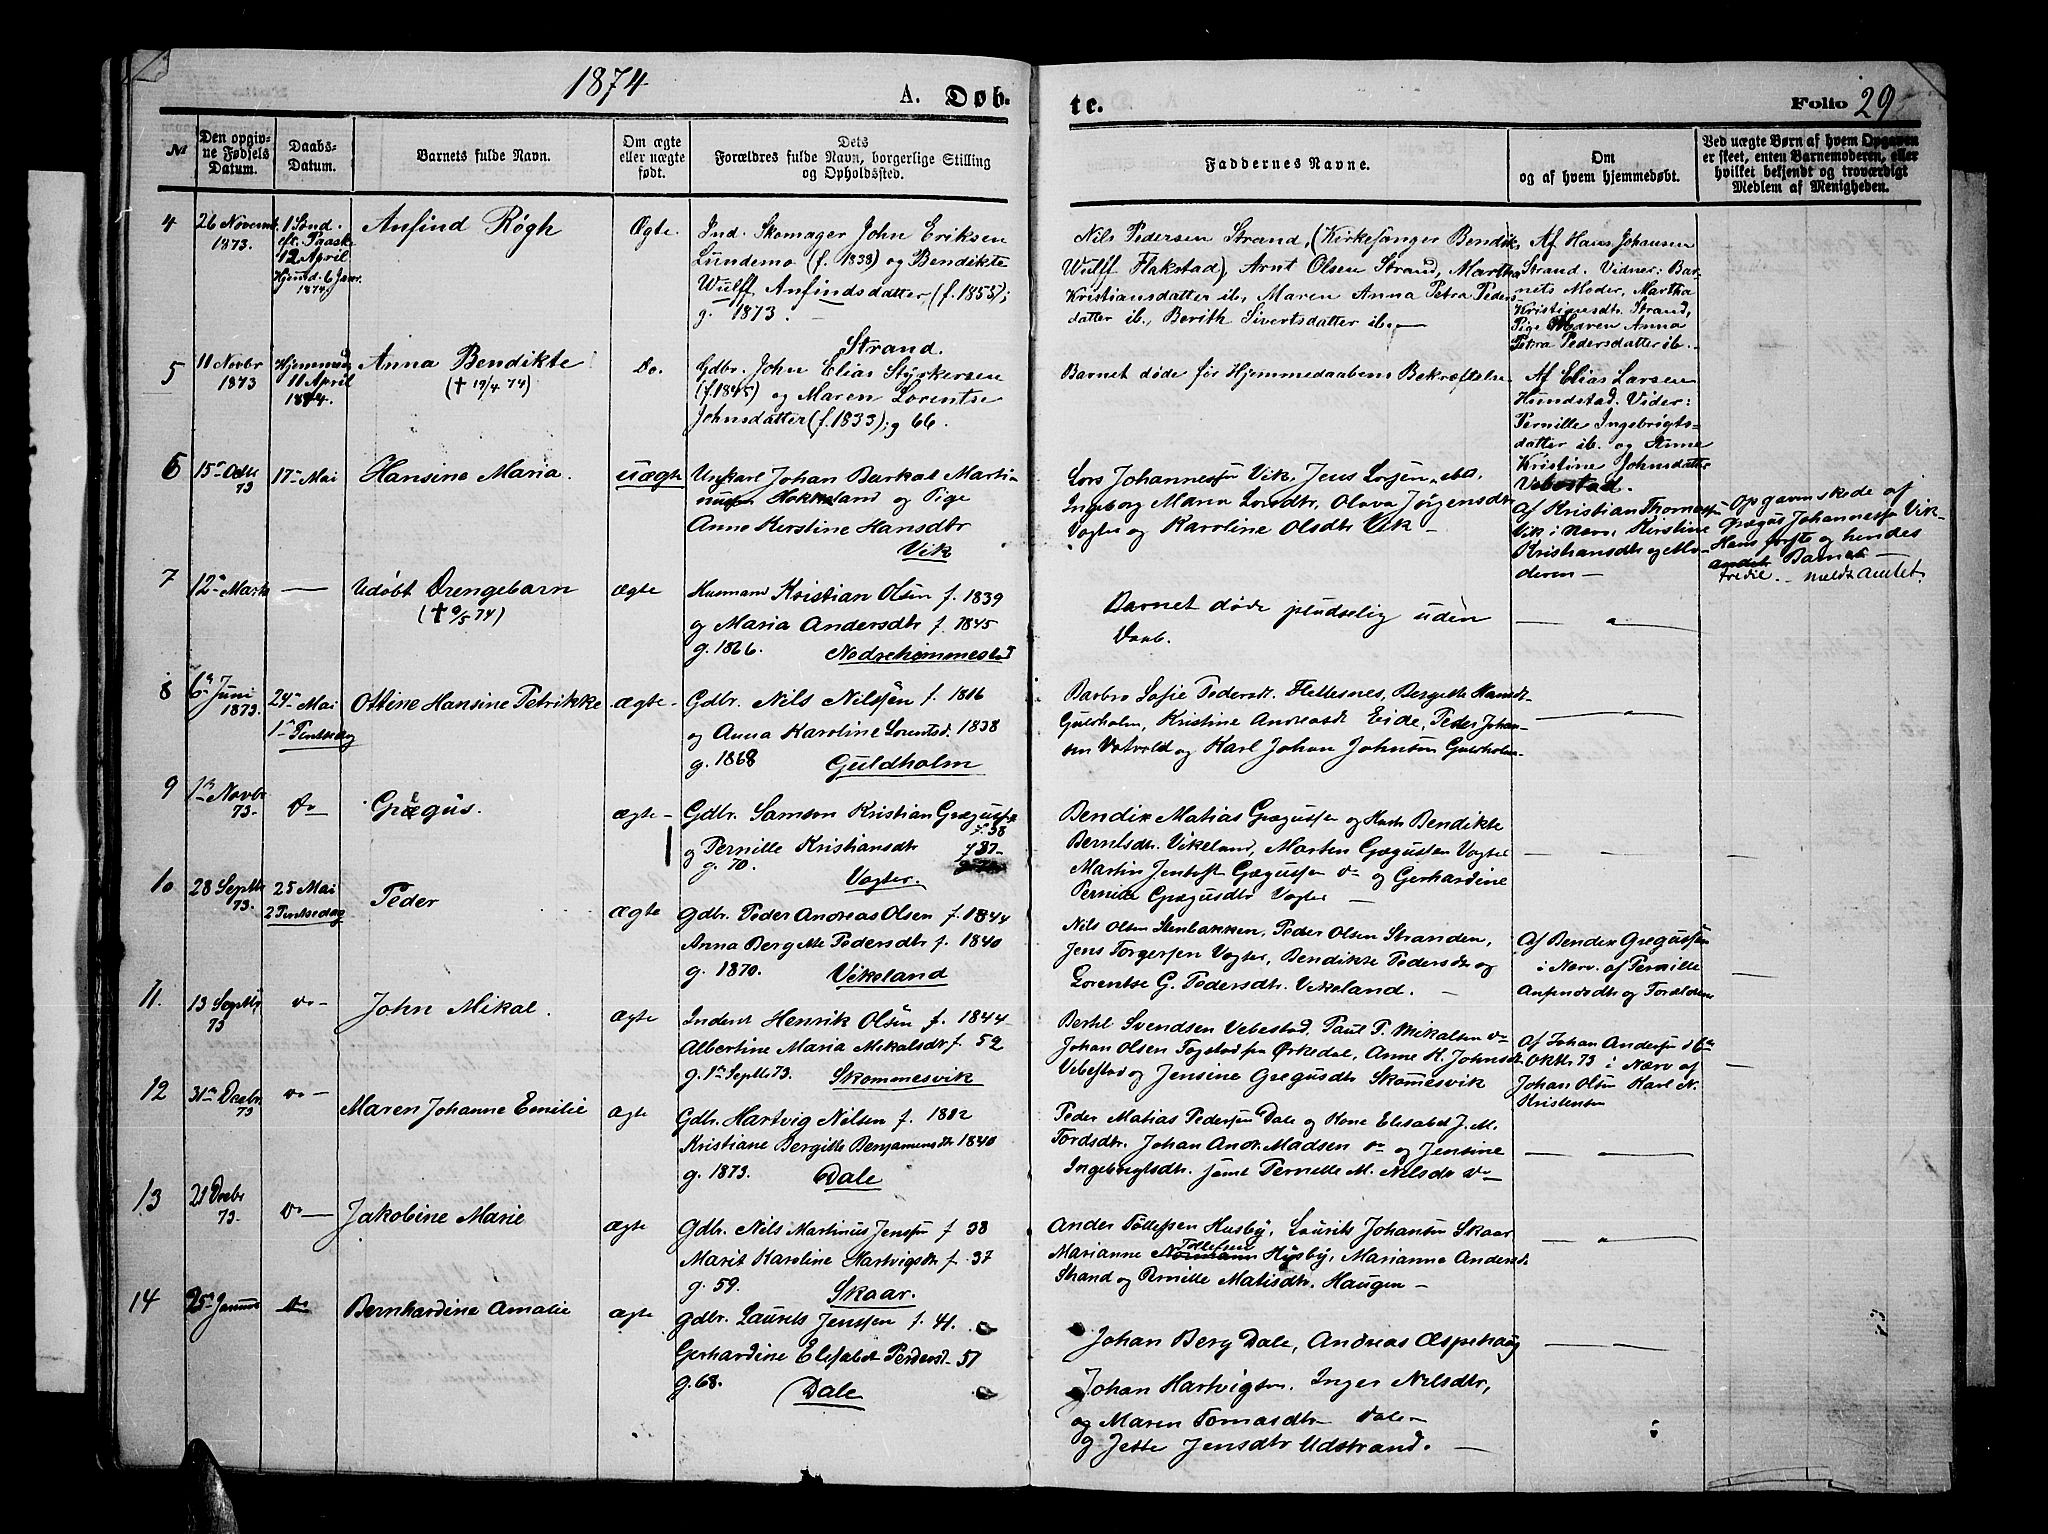 1874
A. Døb.
te.
Folio 29
№
Den opgiv-
ne Fødsels
Datum.
Daabs-
Datum.
Barnets fulde Navn.
Om ægte
eller uægte
født.
Dets
Forældres fulde Navn, borgerlige Stilling
og Opholdssted.
Faddernes Navne.
Om
og af hvem hjemmedøbt.
Ved uægte Børn af hvem Opgaven
er skeet, enten Barnemoderen, eller
hvilket bekjendt og troværdigt
Medlem af Menigheden.
4
26 Novemb.
1873.
1 Sønd.
eft. Paaske
12 April
Hjmd. 6 Janr.
1874.
Anfind Røgh
Ægte.
Ind. Skomager John Eriksen
Lundemo (f. 1838) og Bendikte
Wulff Anfindsdatter (f. 1853);
g. 1873.
Strand.
Nils Pedersen Strand, (Kirkesanger Bendik
Wulff Flakstad), Arnt Olsen Strand, Martha
Kristiansdatter ib., Maren Anna Petra Peders-
datter ib., Berith Sivertsdatter ib. —
Af Hans Johansen
Strand. Vidner: Bar-
nets Moder, Martha
Kristiansdtr. Strand,
Pige Maren Anna
Petra Pedersdatter ib. —
5
11 Novbr
1873
Hjemmed.
11 April
1874.
Anna Bendikte
(† 19/4 74)
Do.
Gdbr. John Elias Styrkersen
(f. 1845) og Maren Lorentse
Johnsdatter (f. 1833); g 66.
Barnet døde før Hjemmedaabens Bekræftelse
Af Elias Larsen
Hundstad. Vider:
Pernille Ingebrigts-
datter ib. og Anne
Kristine Johnsdatter
Vebostad.
6
15de Octbr
73
17de Mai
Hansine Maria.
uægte
Ungkarl Johan Barkal Marti-
nusen Hokkeland og Pige
Anne Kirstine Hansdtr
Vik
Lars Johannessen Vik, Jens Larsen ibd.
Ingeborg Maria Larsdtr, Olava Jørgensdtr
Vogter og Karoline Olsdtr Vik —
Af Kristian Thomassen
Vik i Nærv. Kirstine
Kristiansdtr og Mo-
deren —
Opgaven skede af
Grægus Johannessen Vik -
Hans første og hendes
tredie. Barn — meldt Amtet.
7
12te Marts
—
Udøbt Drengebarn
(† 9/5 74)
ægte
Husmand Kristian Olsen f. 1839
og Maria Andersdtr f. 1845
g. 1866. Nedrehemmestad
Barnet døde pludselig uden
Daab.
— " —
8
6te Juni
1873.
24de Mai
1ste Pintsedag
Ottine Hansine Petrikke
ægte -
Gdbr. Nils Nilssen f. 1816
og Anna Karoline Lorentsd. 1838
g. 1868 Guldholm
Barbro Sofie Pedersdt. Flettesnes, Bergitte Hansdt
Guldholm, Kristine Andreasdt Eide, Peder Johan-
sen Votvold og Karl Johan Johnsen Guldholm -
— " —
9
1ste Novbr
73.
do
Grægus.
ægte -
Gdbr. Samson Kristian Grægussen
f. 38
og Pernille Kristiansdtr f 37 -
g. 70.
Vogter.
Bendix Matias Grægussen og Hustr. Bendikte
Berntsdtr. Vikeland, Morten Grægussen Vogter
Martin Jentoft Grægussen do og Gerhardine
Pernille Grægusdtr Vogter —
— — —
10
28 Septbr
73.
25 Mai
2 Pintsedag
Peder
ægte
Gdbr. Peder Andreas Olsen f. 1844
Anna Bergitte Pedersdtr f. 1840
g. 1870. Vikeland
Nils Olsen Stenbakken, Peder Olsen Stranden,
Jens Torgersen Vogter, Bendikte Pedersdtr og
Lorentse G. Pedersdtr. Vikeland. —
Af Bendix Gregussen
i Nærv. af Pernille
Anfindsdtr og Forældrene
11.
13 Septbr
73
do -
John Mikal.
ægte
Inderst Henrik Olsen f. 1844
Albertine Maria Mikalsdtr f. 52
g. 1ste Septbr 73. Skommesvik
Bertel Svendsen Vebestad, Paul P. Mikalsen do
Johan Olsen Fogstad fra Ørkedal, Anne K. Johnsdt
Vebestad og Jensine Gregusdtr Skomesvik
Af Johan Andersen d 6te
Oktbr 73 i Nærv af
Johan Olsen Karl N.
Kristensen
12
31te Decbr
73
do —
Maren Johanne Emilie
ægte
Gdbr. Hartvig Nilsen f. 1812
Kristiane Bergitte Benjamensdtr 1840
g. 1873. Dale
Peder Matias Pedersen Dale og Kone Elisabet J. M.
Tordsdtr. Johan Andr. Madsen do og Jensine
Ingebrigtsdtr. samt Pernille M. Nilsdtr do —
— " —
13
21 Decbr
73.
do —
Jakobine Marie
ægte
Gdbr. Nils Martinus Jenssen f 38
Marit Karoline Hartvigsdtr f. 37
g. 59. Skaar.
Ander Tollefsen Husby, Laurits Johansen Skaar
Tollefsen
Marianne Normann Husby, Marianne Andersdt
Strand og Pernille Matisdtr. Haugen —
— " —
14
25de Januar
do
Bernhardine Amalie
ægte
Gdbr. Laurits Jenssen f. 41.
Gerhardine Elisabet Pedersdt - 51
g. 68.
Dale
Johan Berg Dale, Andreas Æspehaug
Johan Hartvigsen. Inger Nilsdtr,
og Maren Tomasdtr Dale -
og Jette Jensdtr Udstrand. —